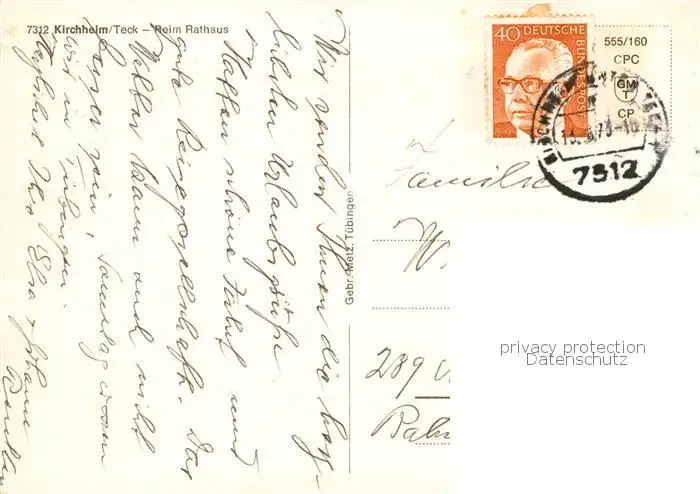 7312 Kirchheim/Teck – Beim Rathaus
Wir senden Ihnen die herz-
lichsten Urlaubsgrüße.
Hatten schöne Fahrt und
gute Reisegesellschaft. Das
Wetter kann auch nicht
besser sein. Samstag waren
wir in Tübingen.
Herzlichst Ihre Elsa +
Gebr. Metz, Tübingen
40 DEUTSCHE
BUNDESPOST
555/160
CPC
GM
T
CP
7312
Familie
W
289
privacy protection
Datenschutz